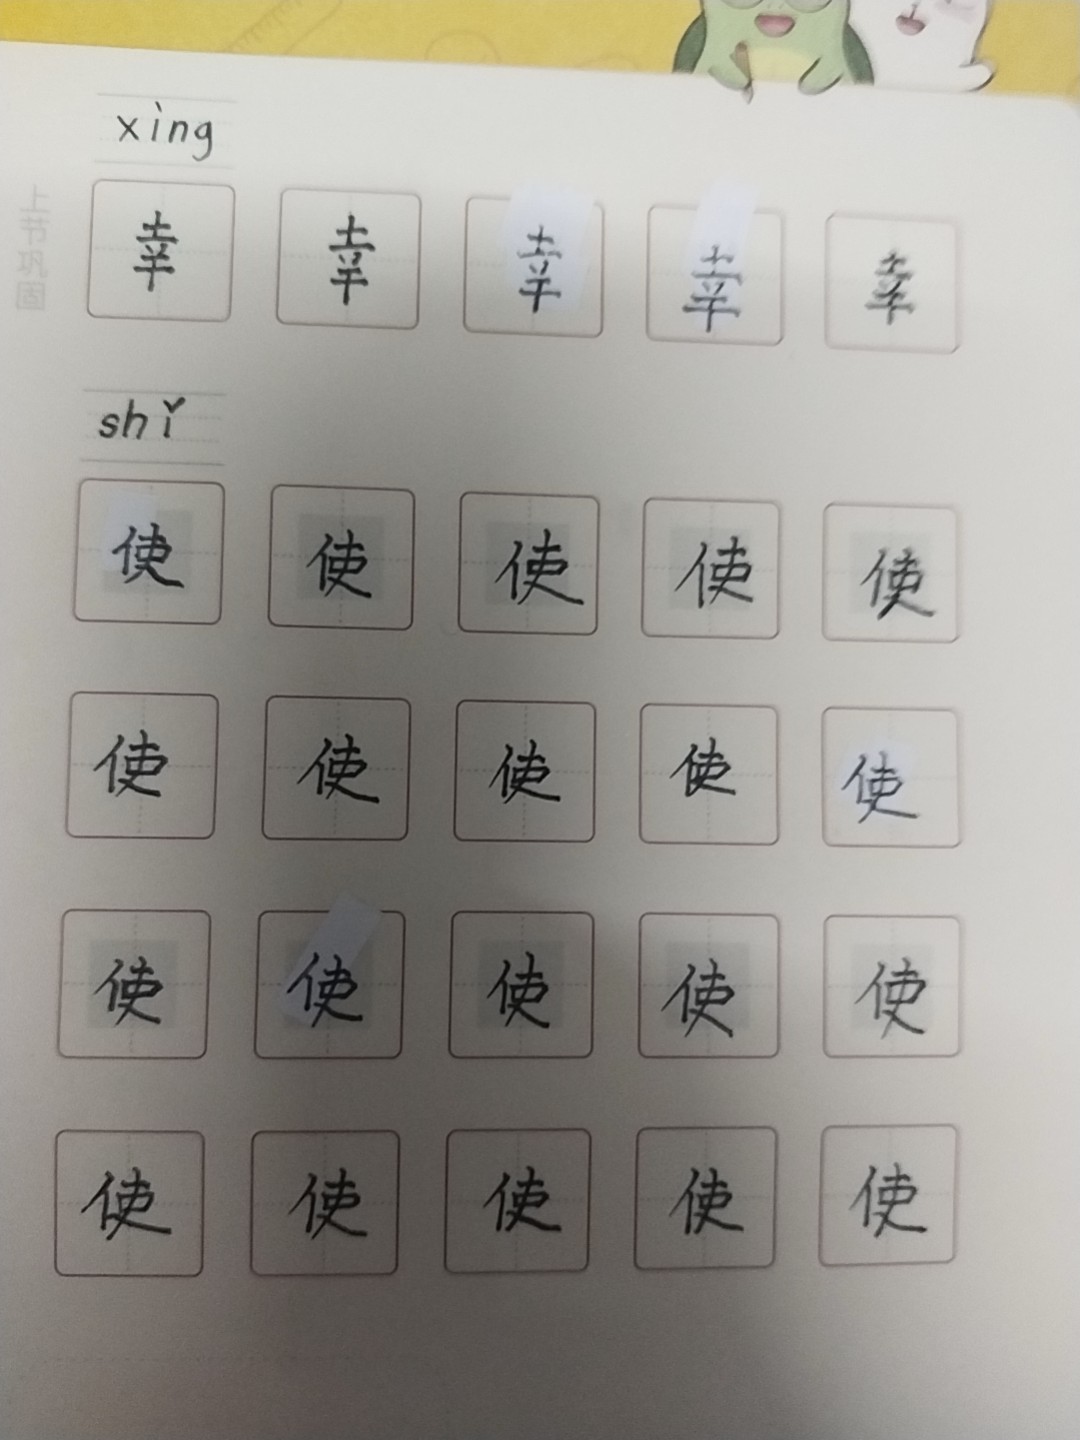 xìng
上节巩固
幸 幸 幸 幸 幸
shǐ
使 使 使 使 使
使 使 使 使 使
使 使 使 使 使
使 使 使 使 使